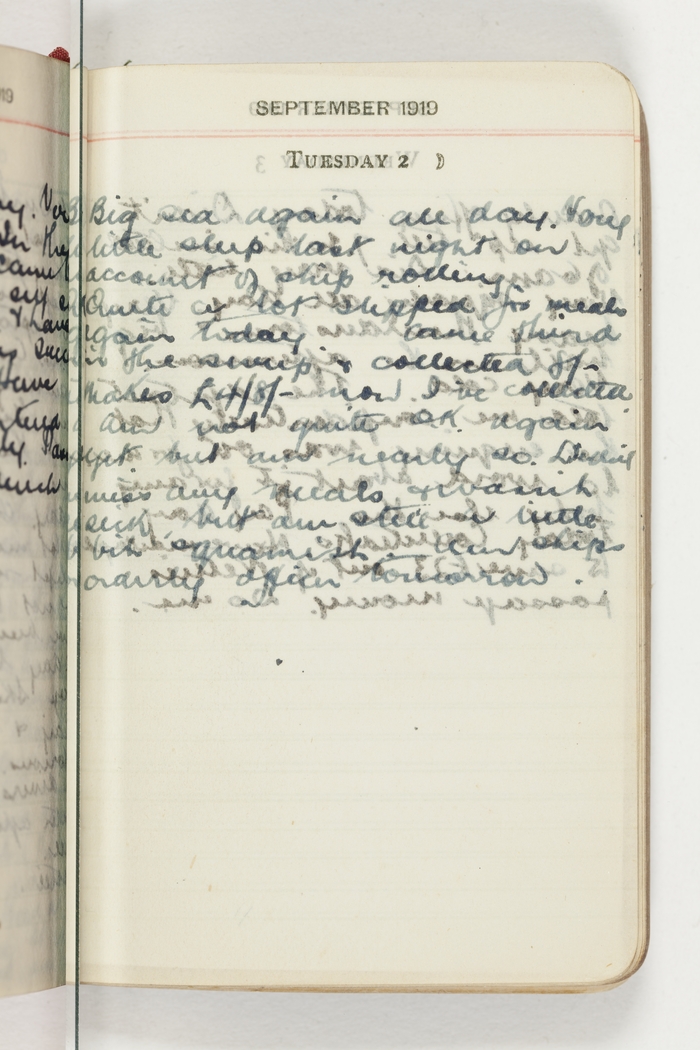 SEPTEMBER 1919
TUESDAY 2
Big sea again all day. Very
little sleep last night on
account of ship rolling.
Quite a lot skipped for meals
again today came third
in the sweep & collected 8/-
Makes £4/8/- now I've collected
Am not quite OK again
yet but am nearly so. Didn't
miss any meals & wasn't
sick but am still a little
bit squamish. Am ships
orderly officer tomorrow.